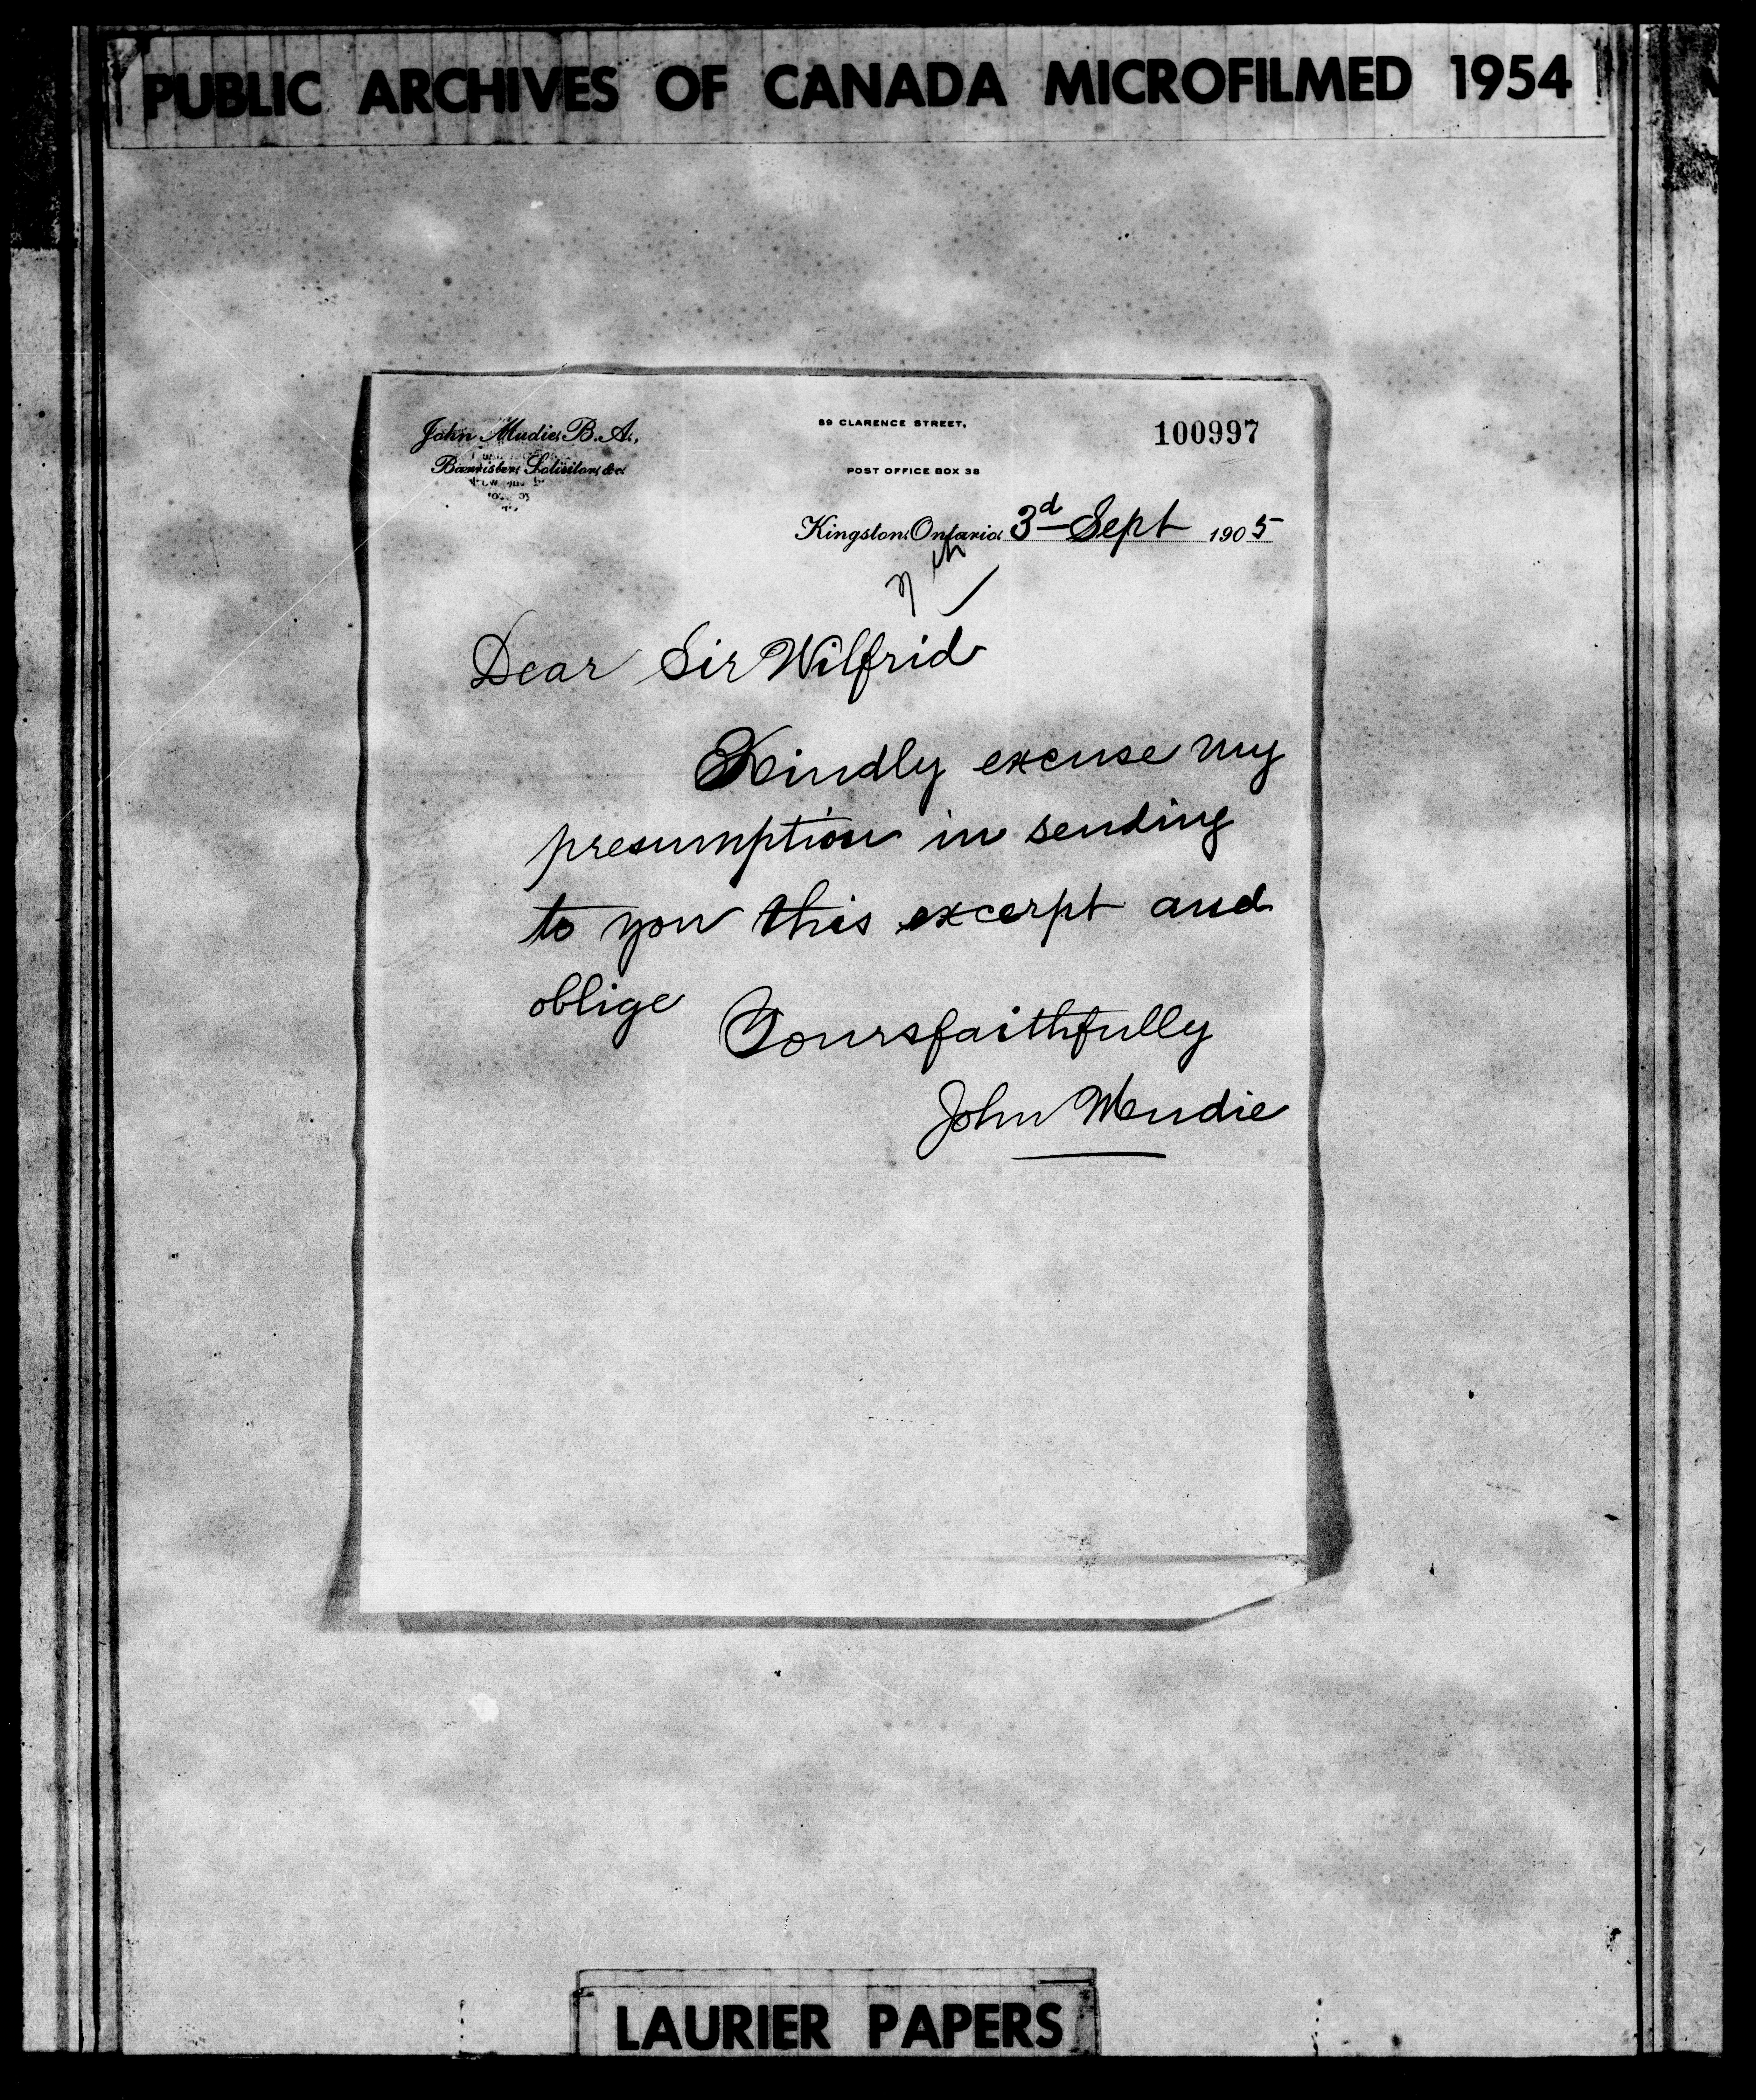 PUBLIC ARCHIVES OF CANADA MICROFILMED 1954
John Mudie, B.A.,
Barrister, Solicitor, &c.
89 CLARENCE STREET,
POST OFFICE BOX 38
100997
Kingston, Ontario, 3d Sept 1905
Dear Sir Wilfrid
Kindly excuse my
presumption in sending
to you this excerpt and
oblige
Yours faithfully
John Mudie
LAURIER PAPERS